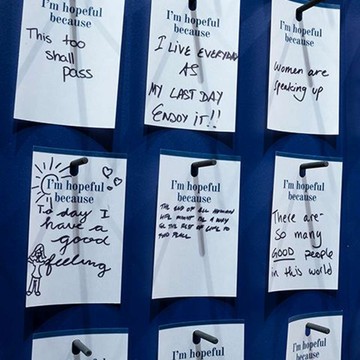 I'm hopeful
because
This too
shall
pass
I'm hopeful
because
I LIVE EVERYDAY
AS
MY LAST DAY
ENJOY IT!!
I'm hopeful
because
Women are
speaking up
I'm hopeful
because
Today I
have a
good
feeling
I'm hopeful
because
THE END OF ALL HUMAN
LIFE MIGHT BE A WAY
THE REST OF LIFE TO
I'm hopeful
because
There are
so many
GOOD people
in this world
I'm hopeful
because
I'm hopeful
because
I'm hopeful
because